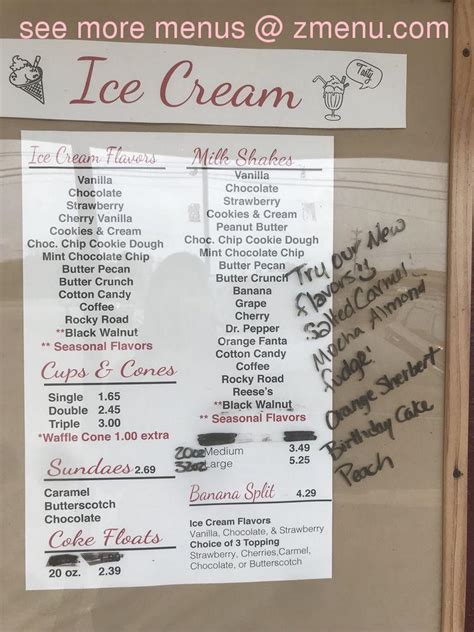 see more menus @ zmenu.com
Ice Cream
Tasty
Ice Cream Flavors
Vanilla
Chocolate
Strawberry
Cherry Vanilla
Cookies & Cream
Choc. Chip Cookie Dough
Mint Chocolate Chip
Butter Pecan
Butter Crunch
Cotton Candy
Coffee
Rocky Road
**Black Walnut
** Seasonal Flavors
Cups & Cones
Single 1.65
Double 2.45
Triple 3.00
*Waffle Cone 1.00 extra
Sundaes 2.69
Caramel
Butterscotch
Chocolate
Coke Floats
20 oz. 2.39
Milk Shakes
Vanilla
Chocolate
Strawberry
Cookies & Cream
Peanut Butter
Choc. Chip Cookie Dough
Mint Chocolate Chip
Butter Pecan
Butter Crunch
Banana
Grape
Cherry
Dr. Pepper
Orange Fanta
Cotton Candy
Coffee
Rocky Road
Reese's
**Black Walnut
** Seasonal Flavors
20oz Medium 3.49
32oz Large 5.25
Banana Split 4.29
Ice Cream Flavors
Vanilla, Chocolate, & Strawberry
Choice of 3 Topping
Strawberry, Cherries,Carmel,
Chocolate, or Butterscotch
Try our New
Flavors
Salted Carmel
Mocha Almond
fudge
Orange Sherbert
Birthday Cake
Peach